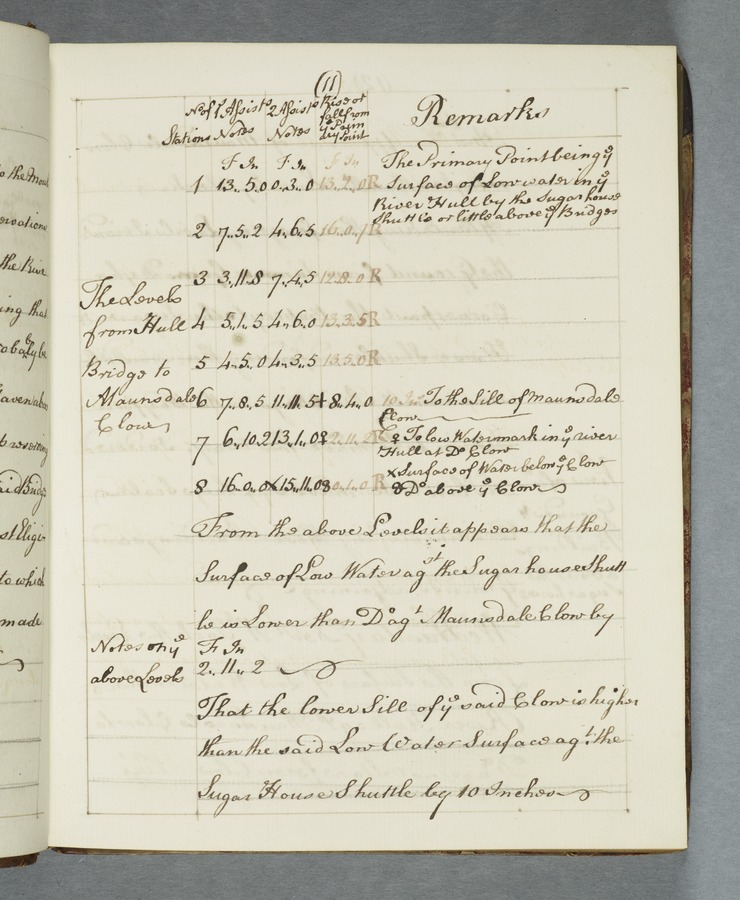 (11)
Stations
No of 1 Assists 2 Assists Rise or fall from ye Prim ary Point
Notes Notes
Remarks
F In F In F In
The Primary Point being ye
1 13.. 5.. 0 0.. 3.. 0 13.. 2.. 0 R Surface of Low water in ye
River Hull by the Sugar house
Shuttle or little above ye Bridges
2 7.. 5.. 2 4.. 6.. 5 16.. 0.. 1 R
3 3.. 11.. 8 7.. 4.. 5 12.. 8.. 0 R
The Levels
from Hull 4 5.. 1.. 5 4.. 6.. 0 13.. 3.. 5 R
Bridge to 5 4.. 5.. 0 4.. 3.. 5 13.. 5.. 0 R
Maunsdale 6 7.. 8.. 5 11.. 11.. 5 + 8.. 4.. 0 10 In To the Sill of Maunsdale
Clow
Clow
7 6.. 10.. 2 13.. 1.. 0 ♀ 2.. 11.. 2 R ♀ To low Watermark in ye river
Hull at Do Clow
× Surface of Water below ye Clow
8 16.. 0.. 0 × 15.. 11.. 0 0.. 1.. 0 R Do above ye Clow
From the above Levels it appears that the
Surface of Low Water agst the Sugar house Shutt
le is Lower than Do agt Maunsdale Clow by
Notes on ye F In
above Levels 2.. 11.. 2
That the lower Sill of ye said Clow is higher
than the said Low Water Surface agt the
Sugar House Shuttle by 10 Inches